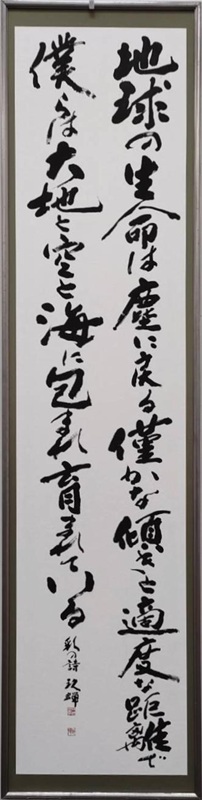 地球の生命は塵に戻る僅かな傾きと適度な距離で
僕らは大地と空と海に包まれ育まれている
彩の詩